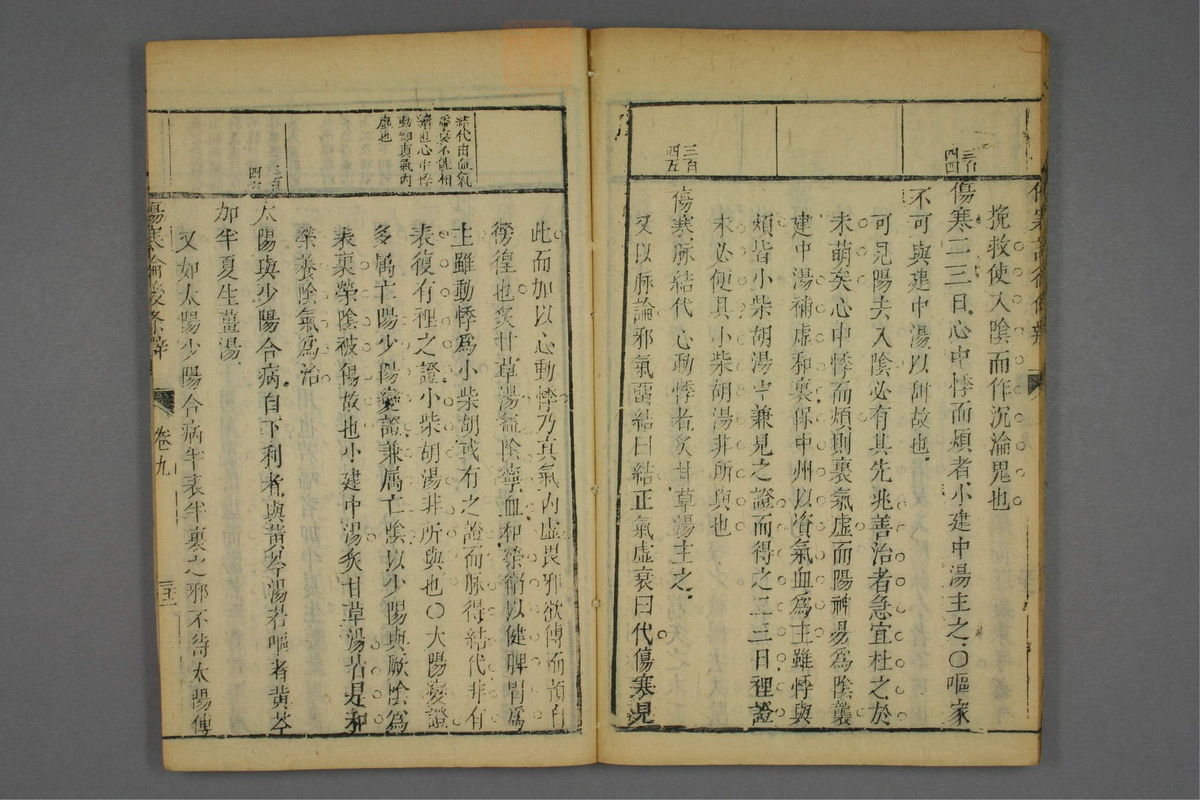 挽救使入陰而作沉淪鬼也
三百四四
傷寒二三日心中悸而煩者小建中湯主之○嘔家
不可與建中湯以甜故也
可見陽去入陰必有其先兆善治者急宜杜之於
未萌矣心中悸而煩則裏氣虛而陽神場為陰襲
建中湯補虛和裏保中州以資氣血為主雖悸與
煩皆小柴胡湯中兼見之證而得之二三日裡證
未必便具小柴胡湯非所與也
三百四五
傷寒脉結代心動悸者炙甘草湯主之
又以脉論邪氣留結曰結正氣虛衰曰代傷寒見
此而加以心動悸乃真氣內虛畏邪欲傳而頻自
徬徨也炙甘草湯益陰寧血和榮衛以健脾胃為
結代由血氣
虛衰不能相
續也心中悸
動知真氣內
虛也
主雖動悸為小柴胡或有之證而脉得結代非有
表復有裡之證小柴胡湯非所與也○太陽變證
多屬亡陽少陽變證兼屬亡陰以少陽與厥陰為
表裏榮陰被傷故也小建中湯炙甘草湯皆是和
榮養陰氣為治
太陽與少陽合病自下利者與黃芩湯若嘔者黃芩
加半夏生薑湯
又如太陽少陽合病半表半裏之邪不待太陽傳
傷寒論後條辨
卷九